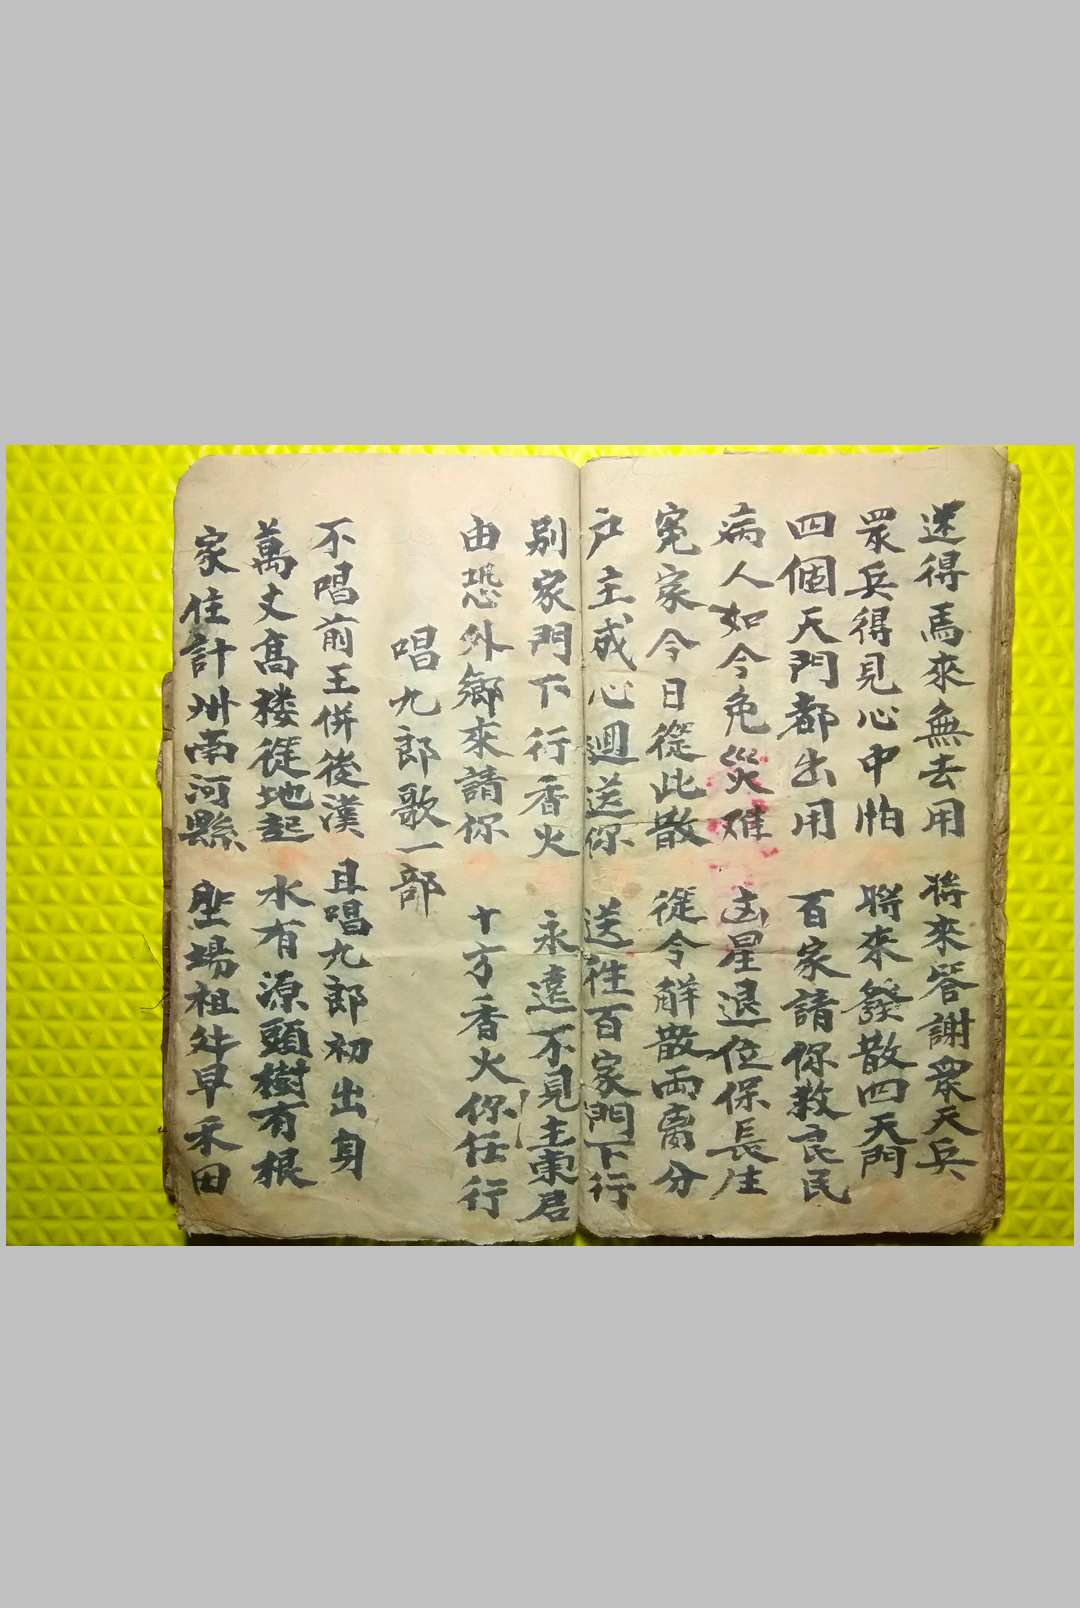 送得馬來無去用 將來答謝眾天兵
眾兵得見心中怕 將來發散四天門
四個天門都出用 百家請你救良民
病人如今免災难 凶星退位保長生
冤家今日從此散 從今解散兩离分
戶主成心迴送你 送往百家門下行
别家門下行香火 永遠不見主東君
由恐外鄉來請你 十方香火你任行
唱九郎歌一部
不唱前王併後漢 且唱九郎初出身
萬丈高楼從地起 水有源頭樹有根
家住計州南河縣 場祖早禾田